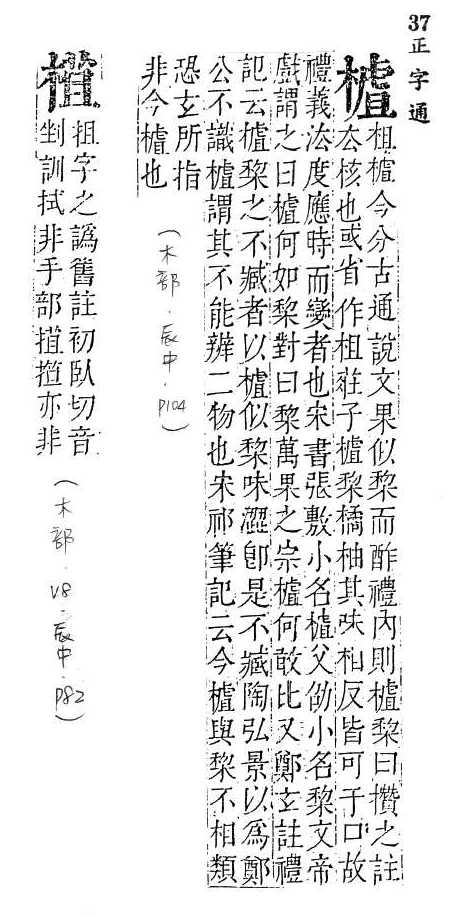 37正字通
樝
柤樝今分古通說文果似棃而酢禮內則樝棃曰攢之註
去核也或省作柤莊子樝棃橘柚其味相反皆可于口故
禮義法度應時而變者也宋書張敷小名樝父邵小名棃文帝
戲謂之曰樝何如棃對曰棃萬果之宗樝何敢比又鄭玄註禮
記云樝棃之不臧者以樝似棃味澀卽是不臧陶弘景以爲鄭
公不識樝謂其不能辨二物也宋祁筆記云今樝與棃不相類
恐玄所指
非今樝也
(木部．辰中．P104)
柤字之譌舊註初臥切音
剉訓拭非手部亦非
(木部．V8．辰中．P82)